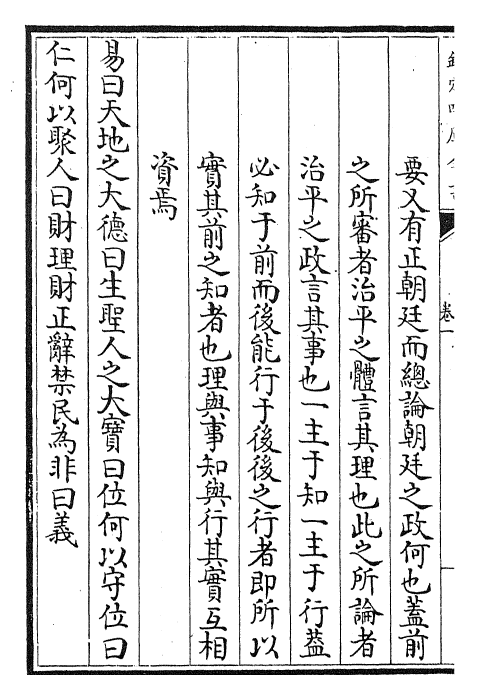 卷一
要又有正朝廷而總論朝廷之政何也蓋前
之所審者治平之體言其理也此之所論者
治平之政言其事也一主于知一主于行葢
必知于前而後能行于後後之行者即所以
實其前之知者也理與事知與行其實互相
資焉
易曰天地之大德曰生聖人之大寶曰位何以守位曰
仁何以聚人曰財理財正辭禁民為非曰義